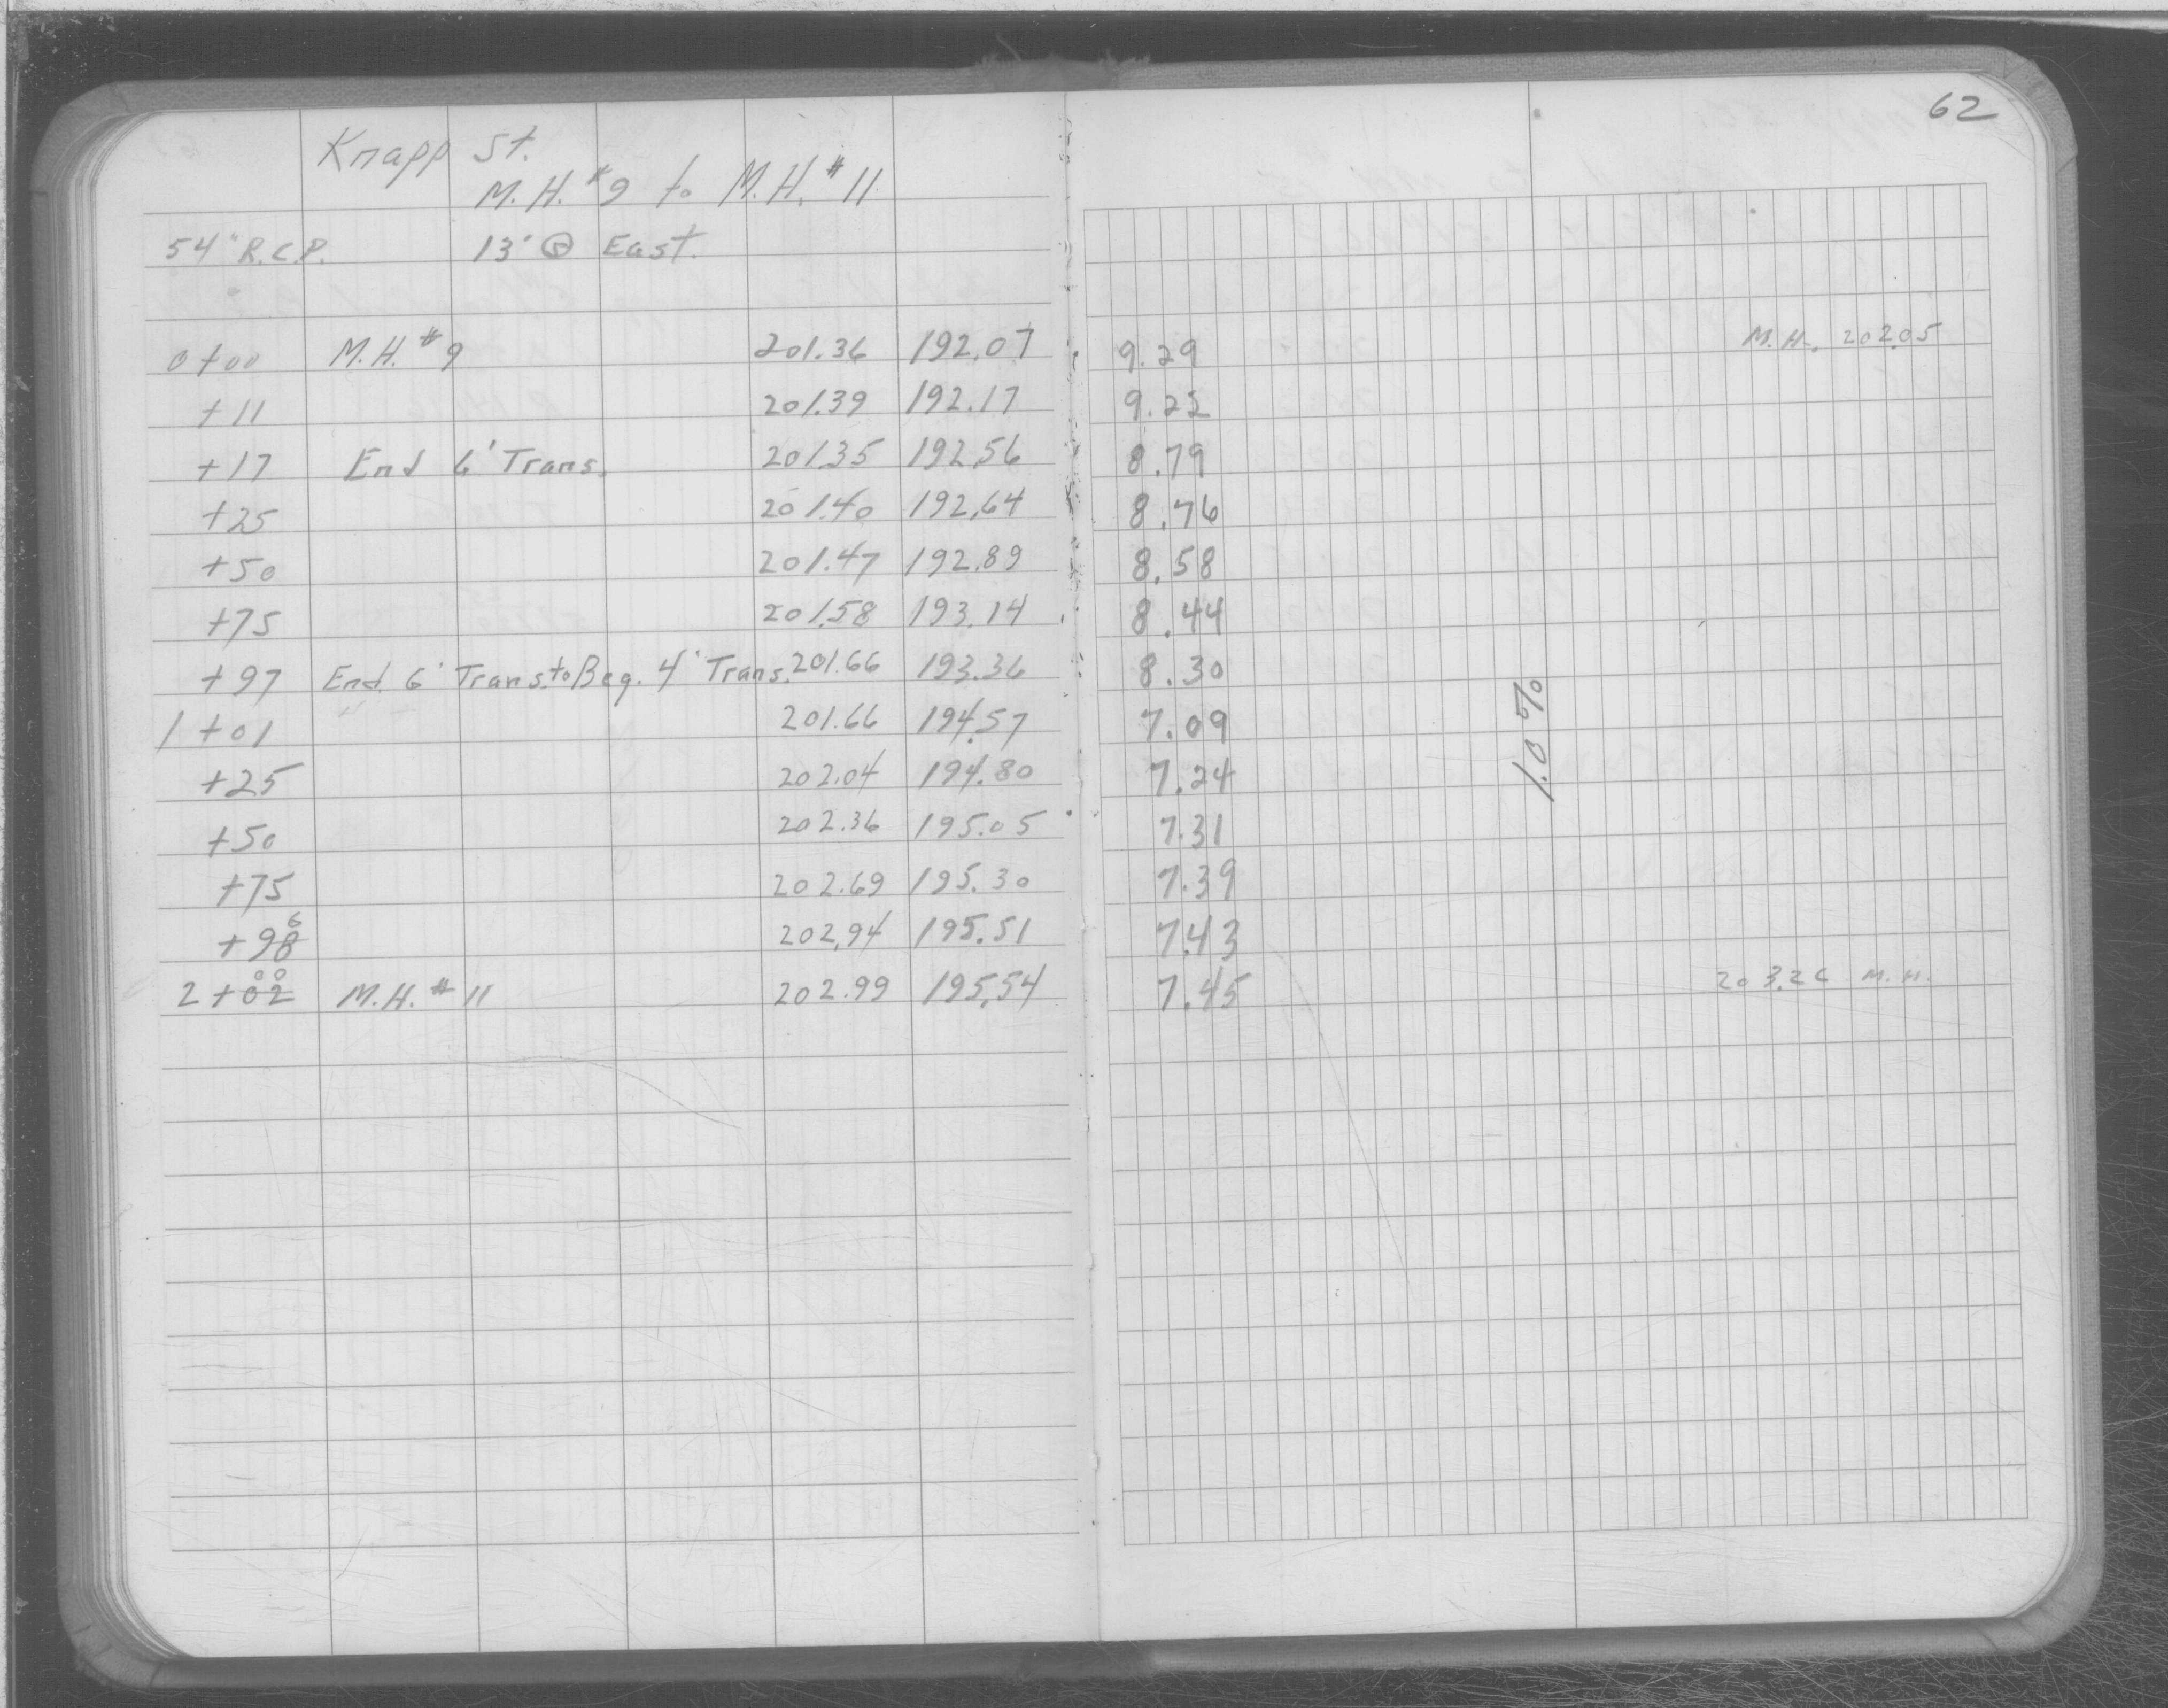 62
Knapp St.
M.H. #9 to M.H. #11
54" R.C.P. 13' @ East.
0+00 M.H. #9 201.36 192.07 9.29 M.H. 202.05
+11 201.39 192.17 9.22
+17 End 6' Trans. 201.35 192.56 8.79
+25 201.40 192.64 8.76
+50 201.47 192.89 8.58
+75 201.58 193.14 8.44
+97 End 6' Trans. to Beg. 4' Trans. 201.66 193.36 8.30
1+01 201.66 194.57 7.09
1.0%
+25 202.04 194.80 7.24
+50 202.36 195.05 7.31
+75 202.69 195.30 7.39
6
+98 202.94 195.51 7.43
00
2+02 M.H. #11 202.99 195.54 7.45 203.26 M.H.